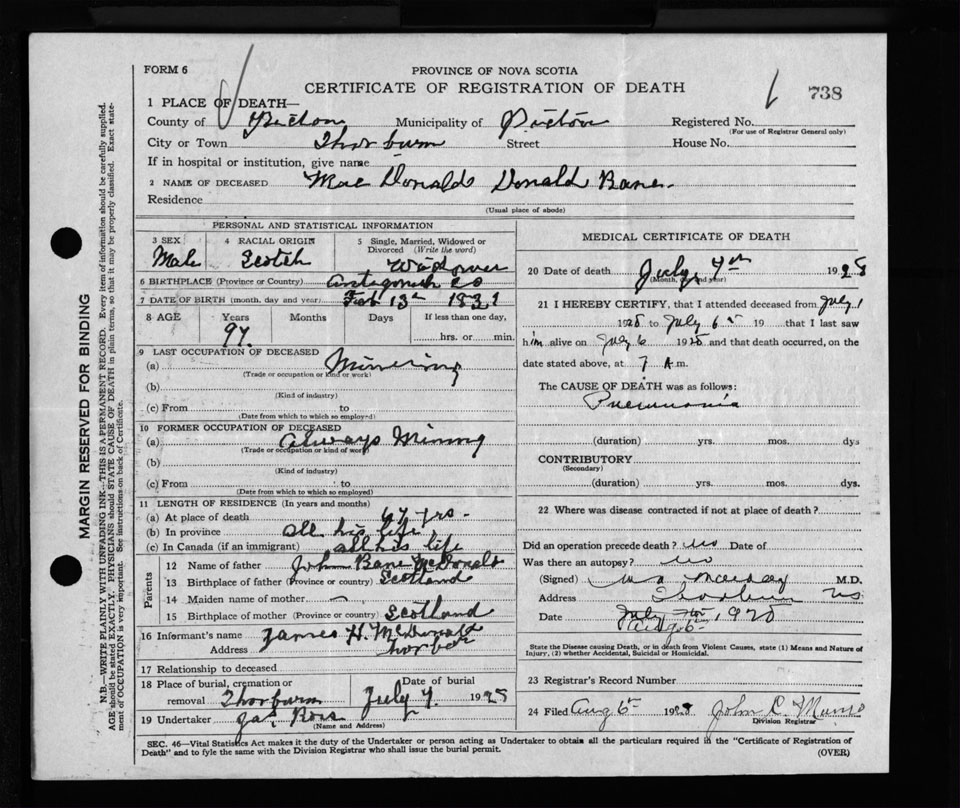 FORM 6
PROVINCE OF NOVA SCOTIA
CERTIFICATE OF REGISTRATION OF DEATH
738
1 PLACE OF DEATH—
County of Pictou Municipality of Pictou Registered No.
(For use of Registrar General only)
City or Town Thorburn Street House No.
If in hospital or institution, give name
2 NAME OF DECEASED MacDonald Donald Bane
Residence
(Usual place of abode)
PERSONAL AND STATISTICAL INFORMATION
3 SEX 4 RACIAL ORIGIN 5 Single, Married, Widowed or Divorced (Write the word)
Male Scotch Widower
6 BIRTHPLACE (Province or Country) Antigonish Co
7 DATE OF BIRTH (month, day and year) Feb 13th 1831
8 AGE Years Months Days If less than one day,
97 hrs. or min.
9 LAST OCCUPATION OF DECEASED
(a) Minering
(Trade or occupation or kind of work)
(b)
(Kind of industry)
(c) From to
(Date from which to which so employed)
10 FORMER OCCUPATION OF DECEASED
(a) always Mining
(Trade or occupation or kind of work)
(b)
(Kind of industry)
(c) From to
(Date from which to which so employed)
11 LENGTH OF RESIDENCE (In years and months)
(a) At place of death 67 yrs.
(b) In province all his life
(c) In Canada (if an immigrant) all his life
Parents
12 Name of father John Bane McDonald
13 Birthplace of father (Province or country) Scotland
14 Maiden name of mother —
15 Birthplace of mother (Province or country) Scotland
16 Informant's name James H. McDonald
Address
17 Relationship to deceased
18 Place of burial, cremation or removal Thorburn Date of burial July 7 1928
19 Undertaker Jas. Ross
(Name and Address)
MEDICAL CERTIFICATE OF DEATH
20 Date of death July 7th 1928
(Month, day and year)
21 I HEREBY CERTIFY, that I attended deceased from July 1
1928 to July 6th 19 that I last saw
him alive on July 6 1928 and that death occurred, on the
date stated above, at 7 A.m.
The CAUSE OF DEATH was as follows:
Pneumonia
(duration) yrs. mos. dys
CONTRIBUTORY
(Secondary)
(duration) yrs. mos. dys.
22 Where was disease contracted if not at place of death?
Did an operation precede death? no Date of
Was there an autopsy? no
(Signed) M.D.
Address Thorburn NS
Date July 7th, 1928
State the Disease causing Death, or in death from Violent Causes, state (1) Means and Nature of Injury, (2) whether Accidental, Suicidal or Homicidal.
23 Registrar's Record Number
24 Filed Aug 6th 1928 John C. Munro
Division Registrar
SEC. 46—Vital Statistics Act makes it the duty of the Undertaker or person acting as Undertaker to obtain all the particulars required in the "Certificate of Registration of
Death" and to fyle the same with the Division Registrar who shall issue the burial permit.
(OVER)
MARGIN RESERVED FOR BINDING
N.B.—WRITE PLAINLY WITH UNFADING INK—THIS IS A PERMANENT RECORD. Every item of information should be carefully supplied.
AGE should be stated EXACTLY. PHYSICIANS should STATE CAUSE OF DEATH in plain terms, so that it may be properly classified. Exact state-
ment of OCCUPATION is very important. See instructions on back of Certificate.